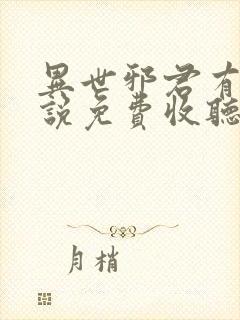 異世邪君有
說免費收聽
月梢